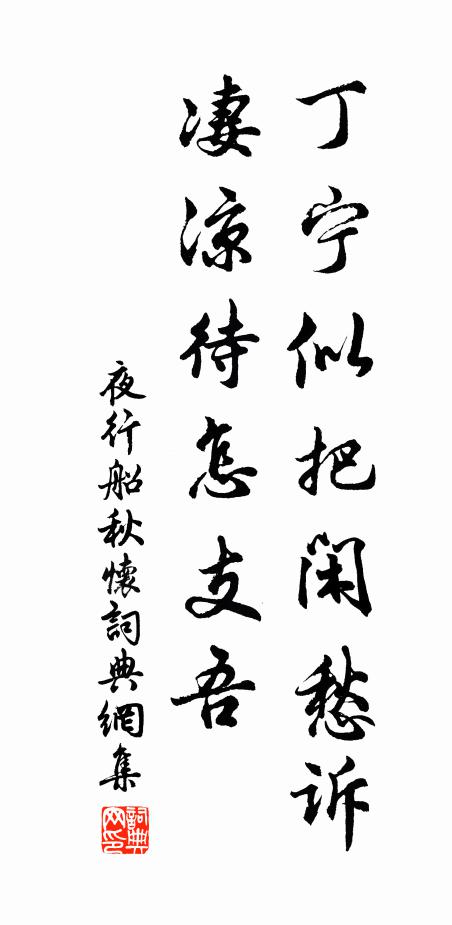 丁宁似把闲愁诉
凄凉待怎支吾
夜行船秋懷詞典網集
詞典网印